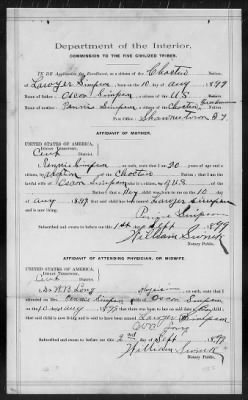 Department of the Interior,
COMMISSION TO THE FIVE CIVILIZED TRIBES.
IN RE Application for Enrollment, as a citizen of the Choctaw Nation,
of Lawyer Simpson, born on the 10 day of Aug 1899
Name of father: Oscar Simpson a citizen of the U.S. Nation.
Name of mother: Simpson a citizen of the Choctaw Nation.
Post Office: Shawneetown I.T.
AFFIDAVIT OF MOTHER.
UNITED STATES OF AMERICA,
INDIAN TERRITORY,
Cent District.
Simpson, on oath, state that I am 20 years of age and a
citizen, by of the Choctaw Nation; that I am the
lawful wife of Oscar Simpson who is a citizen, by of the U.S.
Nation; that a Boy child was born to me on 10 day
of Aug 1899 that said child has been named Lawyer Simpson
and is now living.
Simpson
Subscribed and sworn to before me this 1st day of Sept 1899
William
Notary Public.
AFFIDAVIT OF ATTENDING PHYSICIAN, OR MIDWIFE.
UNITED STATES OF AMERICA,
INDIAN TERRITORY,
Cent District.
I, Dr W.B. Long, a on oath, state that I
attended on Mrs. Simpson, wife of Oscar Simpson
on the 10 day of Aug, 1899; that there was born to her on said date a Boy
child; that said child is now living and is said to have been named Lawyer Simpson
Long
Subscribed and sworn to before me this 2nd day of Sept 1899
William
Notary Public.